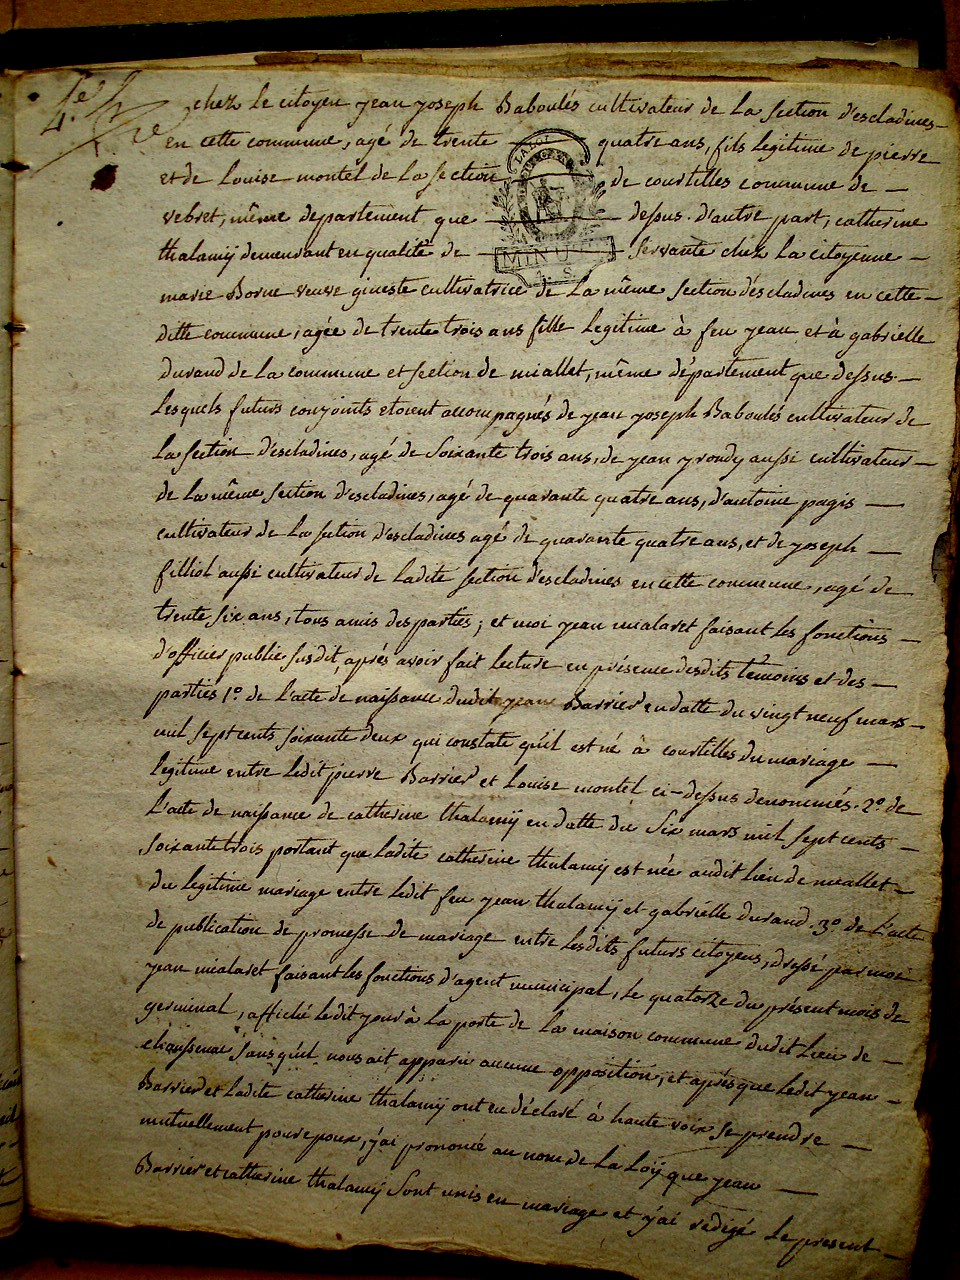 4e f
chez Le citoyen jean joseph Baboulés cultivateur de La section d'escladines
en cette commune, agé de trente quatre ans, fils Legitime de pierre
et de Louise montel de La section de courtilles commune de
vebret, même departement que dessus. d'autre part, catherine
thalamÿ demeurant en qualité de servante chez La citoyenne
LA LOI
MINUT
A. S.
marie Borne veuve gineste cultivatrice de La même section d'escladines en cette
ditte commune, agée de trente trois ans fille Legitime à feu jean et à gabrielle
durand de La commune et section de miallet, même département que dessus.
Lesquels futurs conjoints etoient accompagnés de jean joseph Baboulés cultivateur de
La section d'escladines, agé de soixante trois ans, de jean yroudy aussi cultivateur
de La même section d'escladines, agé de quarante quatre ans, d'antoine pagis
cultivateur de La section d'escladines agé de quarante quatre ans, et de joseph
filliol aussi cultivateur de Ladite section d'escladines en cette commune, agé de
trente six ans, tous amis des parties; et moi jean mialaret faisant Les fonctions
d'officier public susdit, aprés avoir fait Lecture en présence desdits temoins et des
parties 1.º de L'acte de naissance dudit jean Barrier en datte du vingt neuf mars
mil sept cents soixante deux qui constate qu'il est né à courtilles du mariage
Legitime entre Ledit pierre Barrier et Louise montel ci-dessus denommés. 2.º de
L'acte de naissance de catherine thalamÿ en datte du six mars mil sept cents
soixante trois portant que Ladite catherine thalamÿ est née audit Lieu de meallet
du Legitime mariage entre Ledit feu jean thalamÿ et gabriélle durand. 3.º de L'acte
de publication de promesse de mariage entre Lesdits futurs citoyens, dressé par moi
jean mialaret faisant Les fonctions d'agent municipal, Le quatorze du présent mois de
germinal, affiché Ledit jour à La porte de La maison commune dudit Lieu de
chaussenac sans qu'il nous ait apparu aucune opposition; et aprés que Ledit jean
Barrier et Ladite catherine thalamÿ ont eu déclaré à haute voix se prendre
mutuellement pour epoux, j'ai prononcé au nom de La Loÿ que jean
Barrier et catherine thalamÿ sont unis en mariage et j'ai redigé Le present